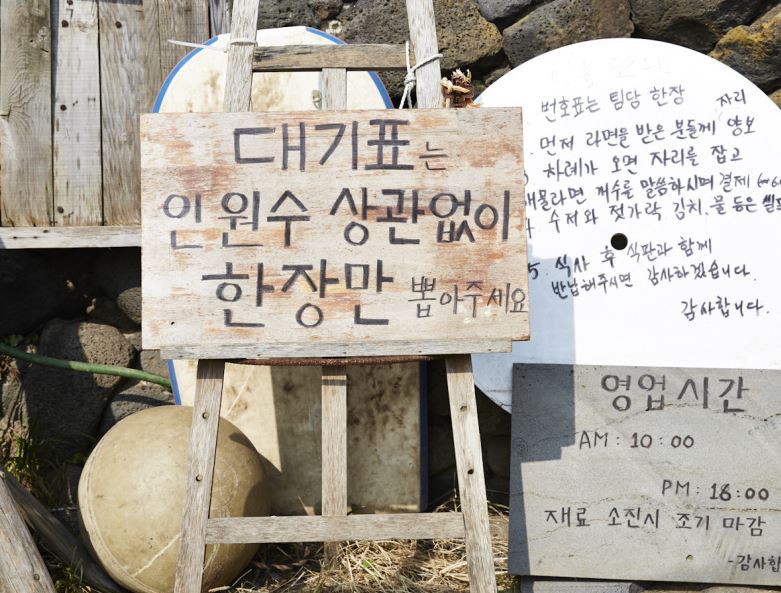 대기표는
인원수 상관없이
한장만 뽑아주세요
번호표는 팀당 한장
자리
먼저 라면을 받은 분들께 양보
차례가 오면 자리를 잡고
해물라면 개수를 말씀하시며 결제
수저와 젓가락 김치, 물 등은
5. 식사 후 식판과 함께
반납해주시면 감사하겠습니다.
감사합니다.
영업시간
AM : 10 : 00
PM : 18 : 00
재료 소진시 조기 마감